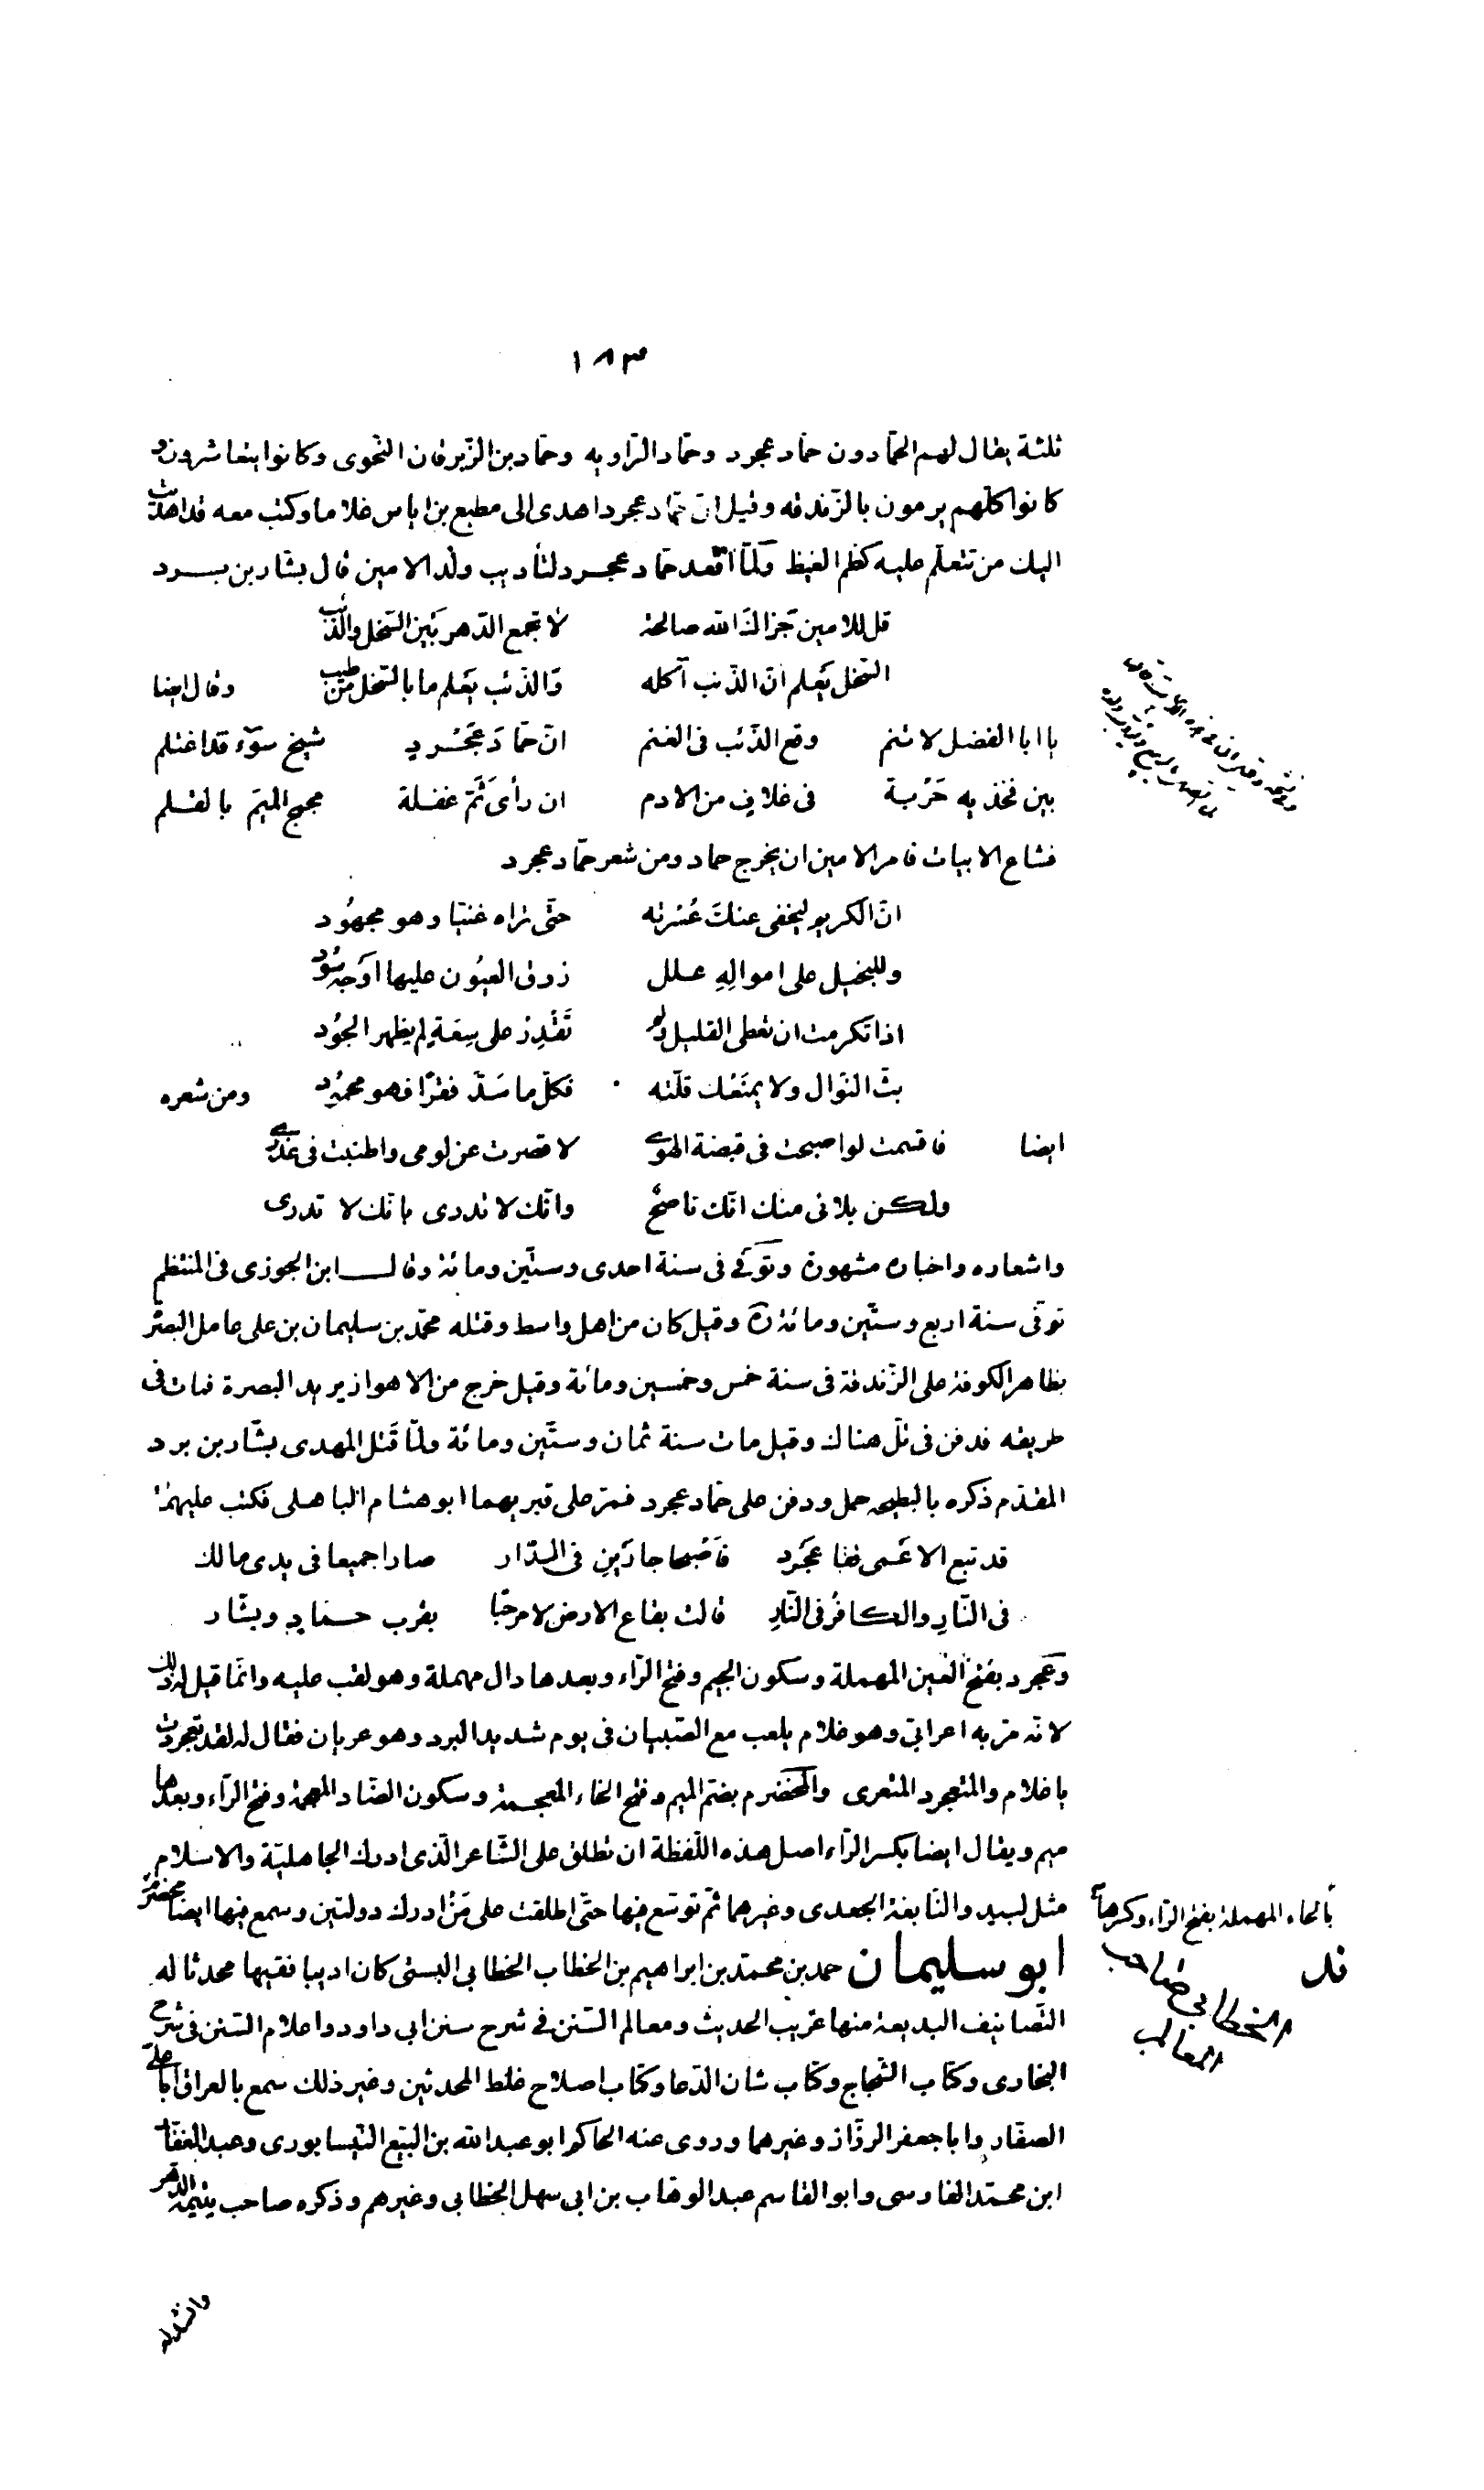 ١٨٣
ثلثة يقال لهم الحمّادون حمّاد عجرد وحمّاد الرّاويه وحمّاد بن الزّبرقان النّحوى وكانوا يتعاشرون و
كانوا كلّهم يرمون بالزّندقه وقيل انّ حمّاد عجرد اهدى الى مطيع بن اياس غلاما وكتب معه قد اهديت
اليك من تتعلّم عليه كظم الغيظ ولمّا اقعد حمّاد عجرد لتأديب ولد الامين قال بشار بن برد
قل للامين جزاك الله صالحة لا تجمع الدّهر بين السّخل والذّئب
السّخل يعلم انّ الذّئب آكله والذّئب يعلم ما بالسّخل من طيب وقال ايضا
يا ابا الفضل لا تنم وقع الذّئب فى الغنم انّ حمّاد عجرد شيخ سوء قد اغتلم
بين فخذيه حربة فى غلاف من الادم ان رأى ثمّ غفلة مجمج الميم بالقلم
فشاع الابيات فامر الامين ان يخرج حماد ومن شعر حمّاد عجرد
انّ الكريم ليخفى عنك عُسرته حتّى تراه غنيّا وهو مجهُود
وللبخيل على اموالِهِ علل زرق العيُون عليها اوجه سُود
اذا تكرمت ان تعطى القليل ولم تَقْدِر على سِعَةٍ لم يظهر الجُود
بثّ النّوال ولا يمنَعْك قلّته فكلّ ما سَدّ فقرًا فهو محمُود ومن شعره
ايضا فاقسمت لو اصبحت فى قبضة الهوى لاقصرت عن لومى واطنبت فى عذرى
ولكن بلائى منك انّك ناصحٌ وانّك لا تدرى بانّك لا تدرى
واشعاره واخباره مشهورة وتوفّى فى سنة احدى وستّين ومائة وقال ابن الجوزى فى المنتظم
توفّى سنة اربع وستّين ومائة وقيل كان من اهل واسط وقتله محمّد بن سليمان بن على عامل البصرة
بظاهر الكوفة على الزّندقة فى سنة خمس وخمسين ومائة وقيل خرج من الاهواز يريد البصرة فمات فى
طريقه فدفن فى تلّ هناك وقيل مات سنة ثمان وستّين ومائة ولمّا قَتل المهدى بشّار بن برد
المقدّم ذكره بالبطيحه حمل ودفن على حمّاد عجرد فمرّ على قبريهما ابو هشام الباهلى فكتب عليهما
قد تبع الاعمى قفا عجرد فاصبحا جارَين فى الدّار صارا جميعا فى يدى مالك
فى النّارِ والكافرُ فى النّارِ قالت بقاع الارض لا مرحبًا بقرب حمّادٍ وبشّار
وعجرد بفتح العين المهملة وسكون الجيم وفتح الرّاء وبعدها دال مهملة وهو لقب عليه وانّما قيل له ذلك
لانّه مرّ به اعرابىّ وهو غلام يلعب مع الصّبيان فى يوم شديد البرد وهو عريان فقال له لقد تعجردت
يا غلام والمتعجرد المتعرى والمخضرم بضمّ الميم وفتح الخاء المعجمة وسكون الضّاد المعجمة وفتح الرّاء وبعدها
ميم ويقال ايضا بكسر الرّاء اصل هذه اللّفظة ان تطلق على الشّاعر الّذى ادرك الجاهليّة والاسلام
مثل لبيد والنّابغة الجعدى وغيرهما ثمّ توسّع فيها حتّى اطلقت على مَنْ ادرك دولتين وسمع فيها ايضا محضرم
بالحاء المهملة بفتح الرّاء وكسرها
ابو سليمان حمد بن محمّد بن ابراهيم بن الخطاب الخطابى البستى كان اديبا فقيها محدثا له
الخطابى صاحب
المعالم
التّصانيف البديعة منها غريب الحديث ومعالم السّنن فى شرح سنن ابى داود واعلام السّنن فى شرح
البخارى وكتاب الشّجاج وكتاب شان الدّعا وكتاب اصلاح غلط المحدثين وغير ذلك سمع بالعراق ابا على
الصفّار وابا جعفر الرزّاز وغيرهما وروى عنه الحاكم ابو عبد الله بن البيّع النّيسابورى وعبد الغفّار
ابن محمّد الفارسى وابو القاسم عبد الوهّاب بن ابى سهل الخطابى وغيرهم وذكره صاحب يتيمة الدّهر
وانشد له